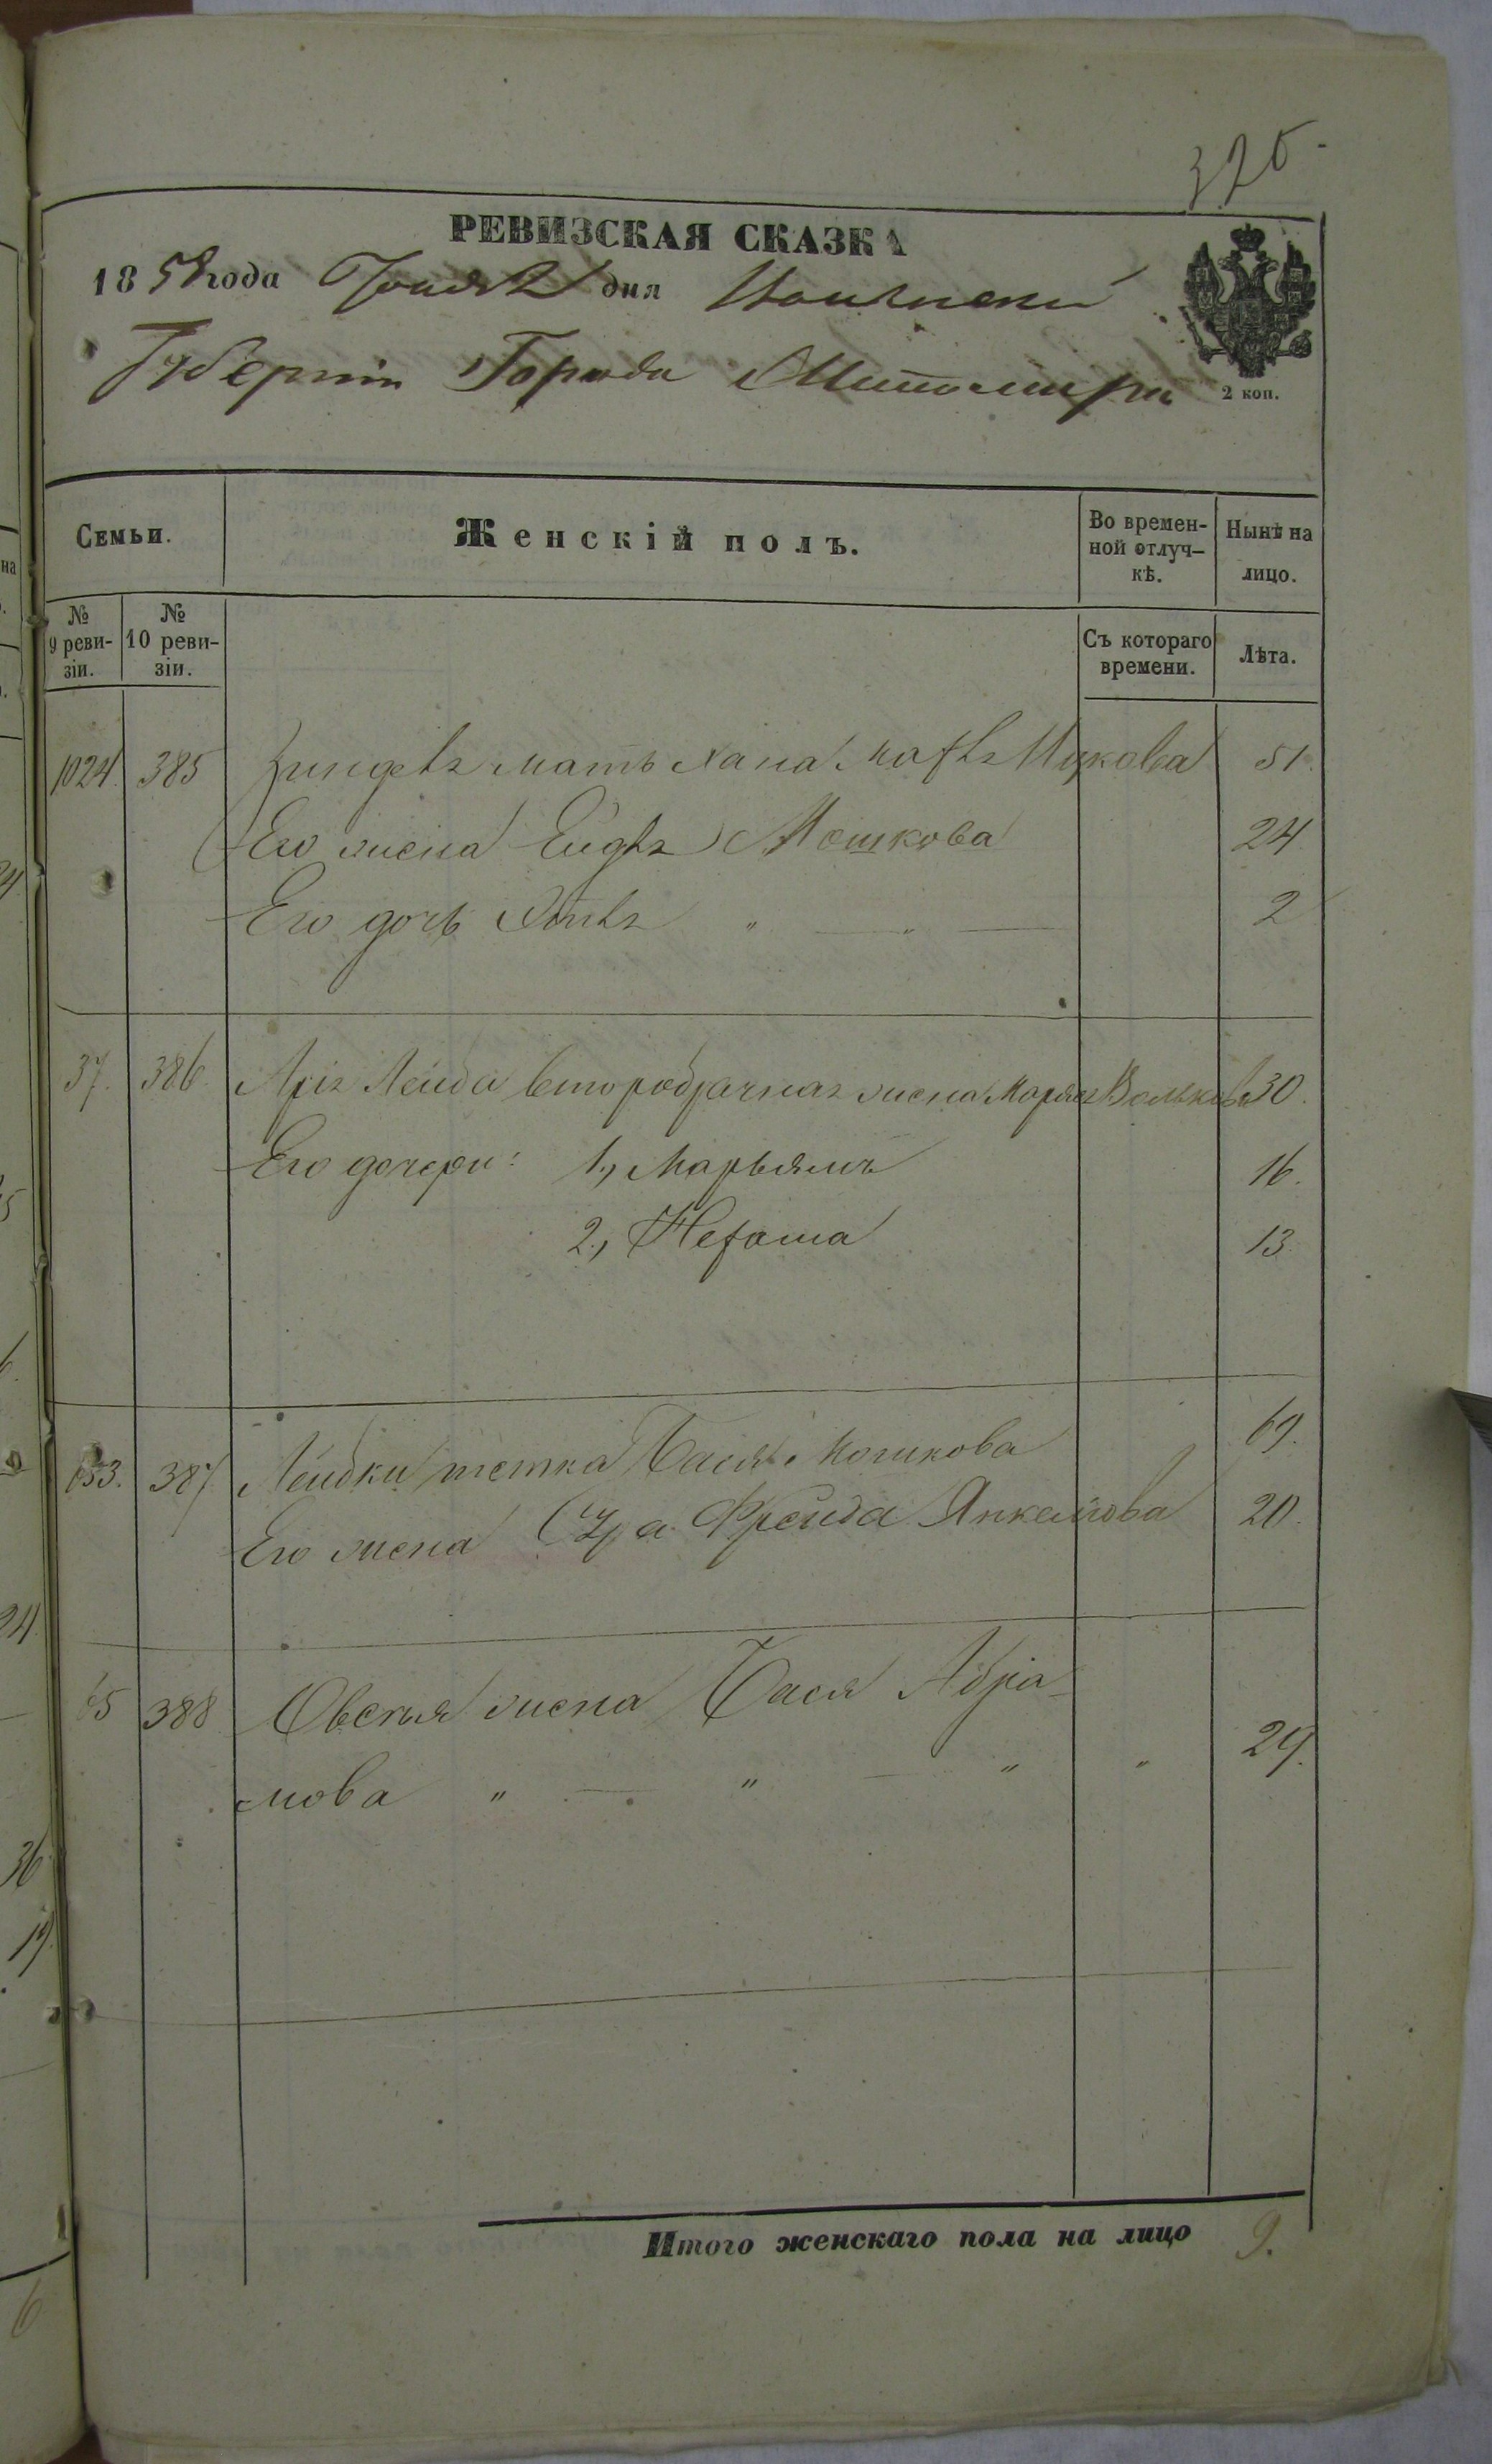 РЕВИЗСКАЯ СКАЗКА
1858 года Іюня 2 дня Волынской
Губерніи Города Житомира
2 коп.
Семьи.
Женскій полъ.
Во времен-
ной отлуч-
кѣ.
Нынѣ на
лицо.
№
9 реви-
зіи.
№
10 реви-
зіи.
Съ котораго
времени.
Лѣта.
1024 385 мать Хана 51.
Его жена Мошкова 24
Его дочь " — " — 2
37. 386. Лейба второбрачная жена Волькова 30.
Его дочери: 1, Марьямъ 16.
2, 13
387 Лейбки тетка Бася Мошкова 69.
Его жена Сура Фрейда Янкелиова 20.
65 388 Овсея жена Бася Абра-
мова " — " — " " 29.
Итого женскаго пола на лицо 9.